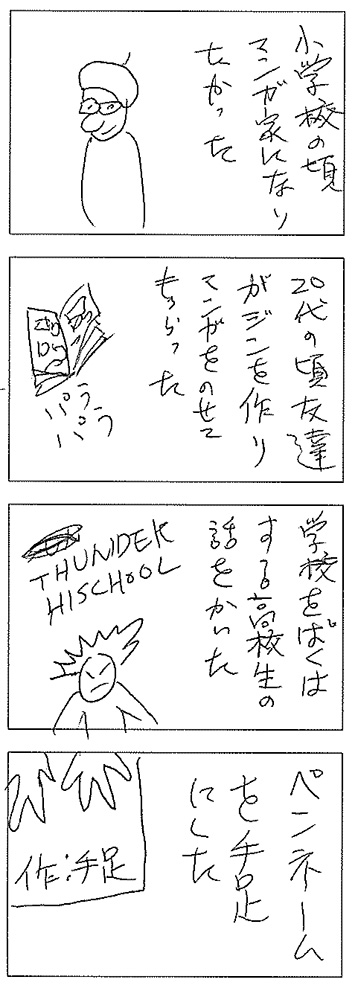 小学校の頃
マンガ家になり
たかった
20代の頃友達
がジンを作り
マンガをのせて
もらった
パラ
パラ
学校をばくは
する高校生の
話をかいた
THUNDER
HISCHOOL
ペンネーム
を手足
にした
作:手足